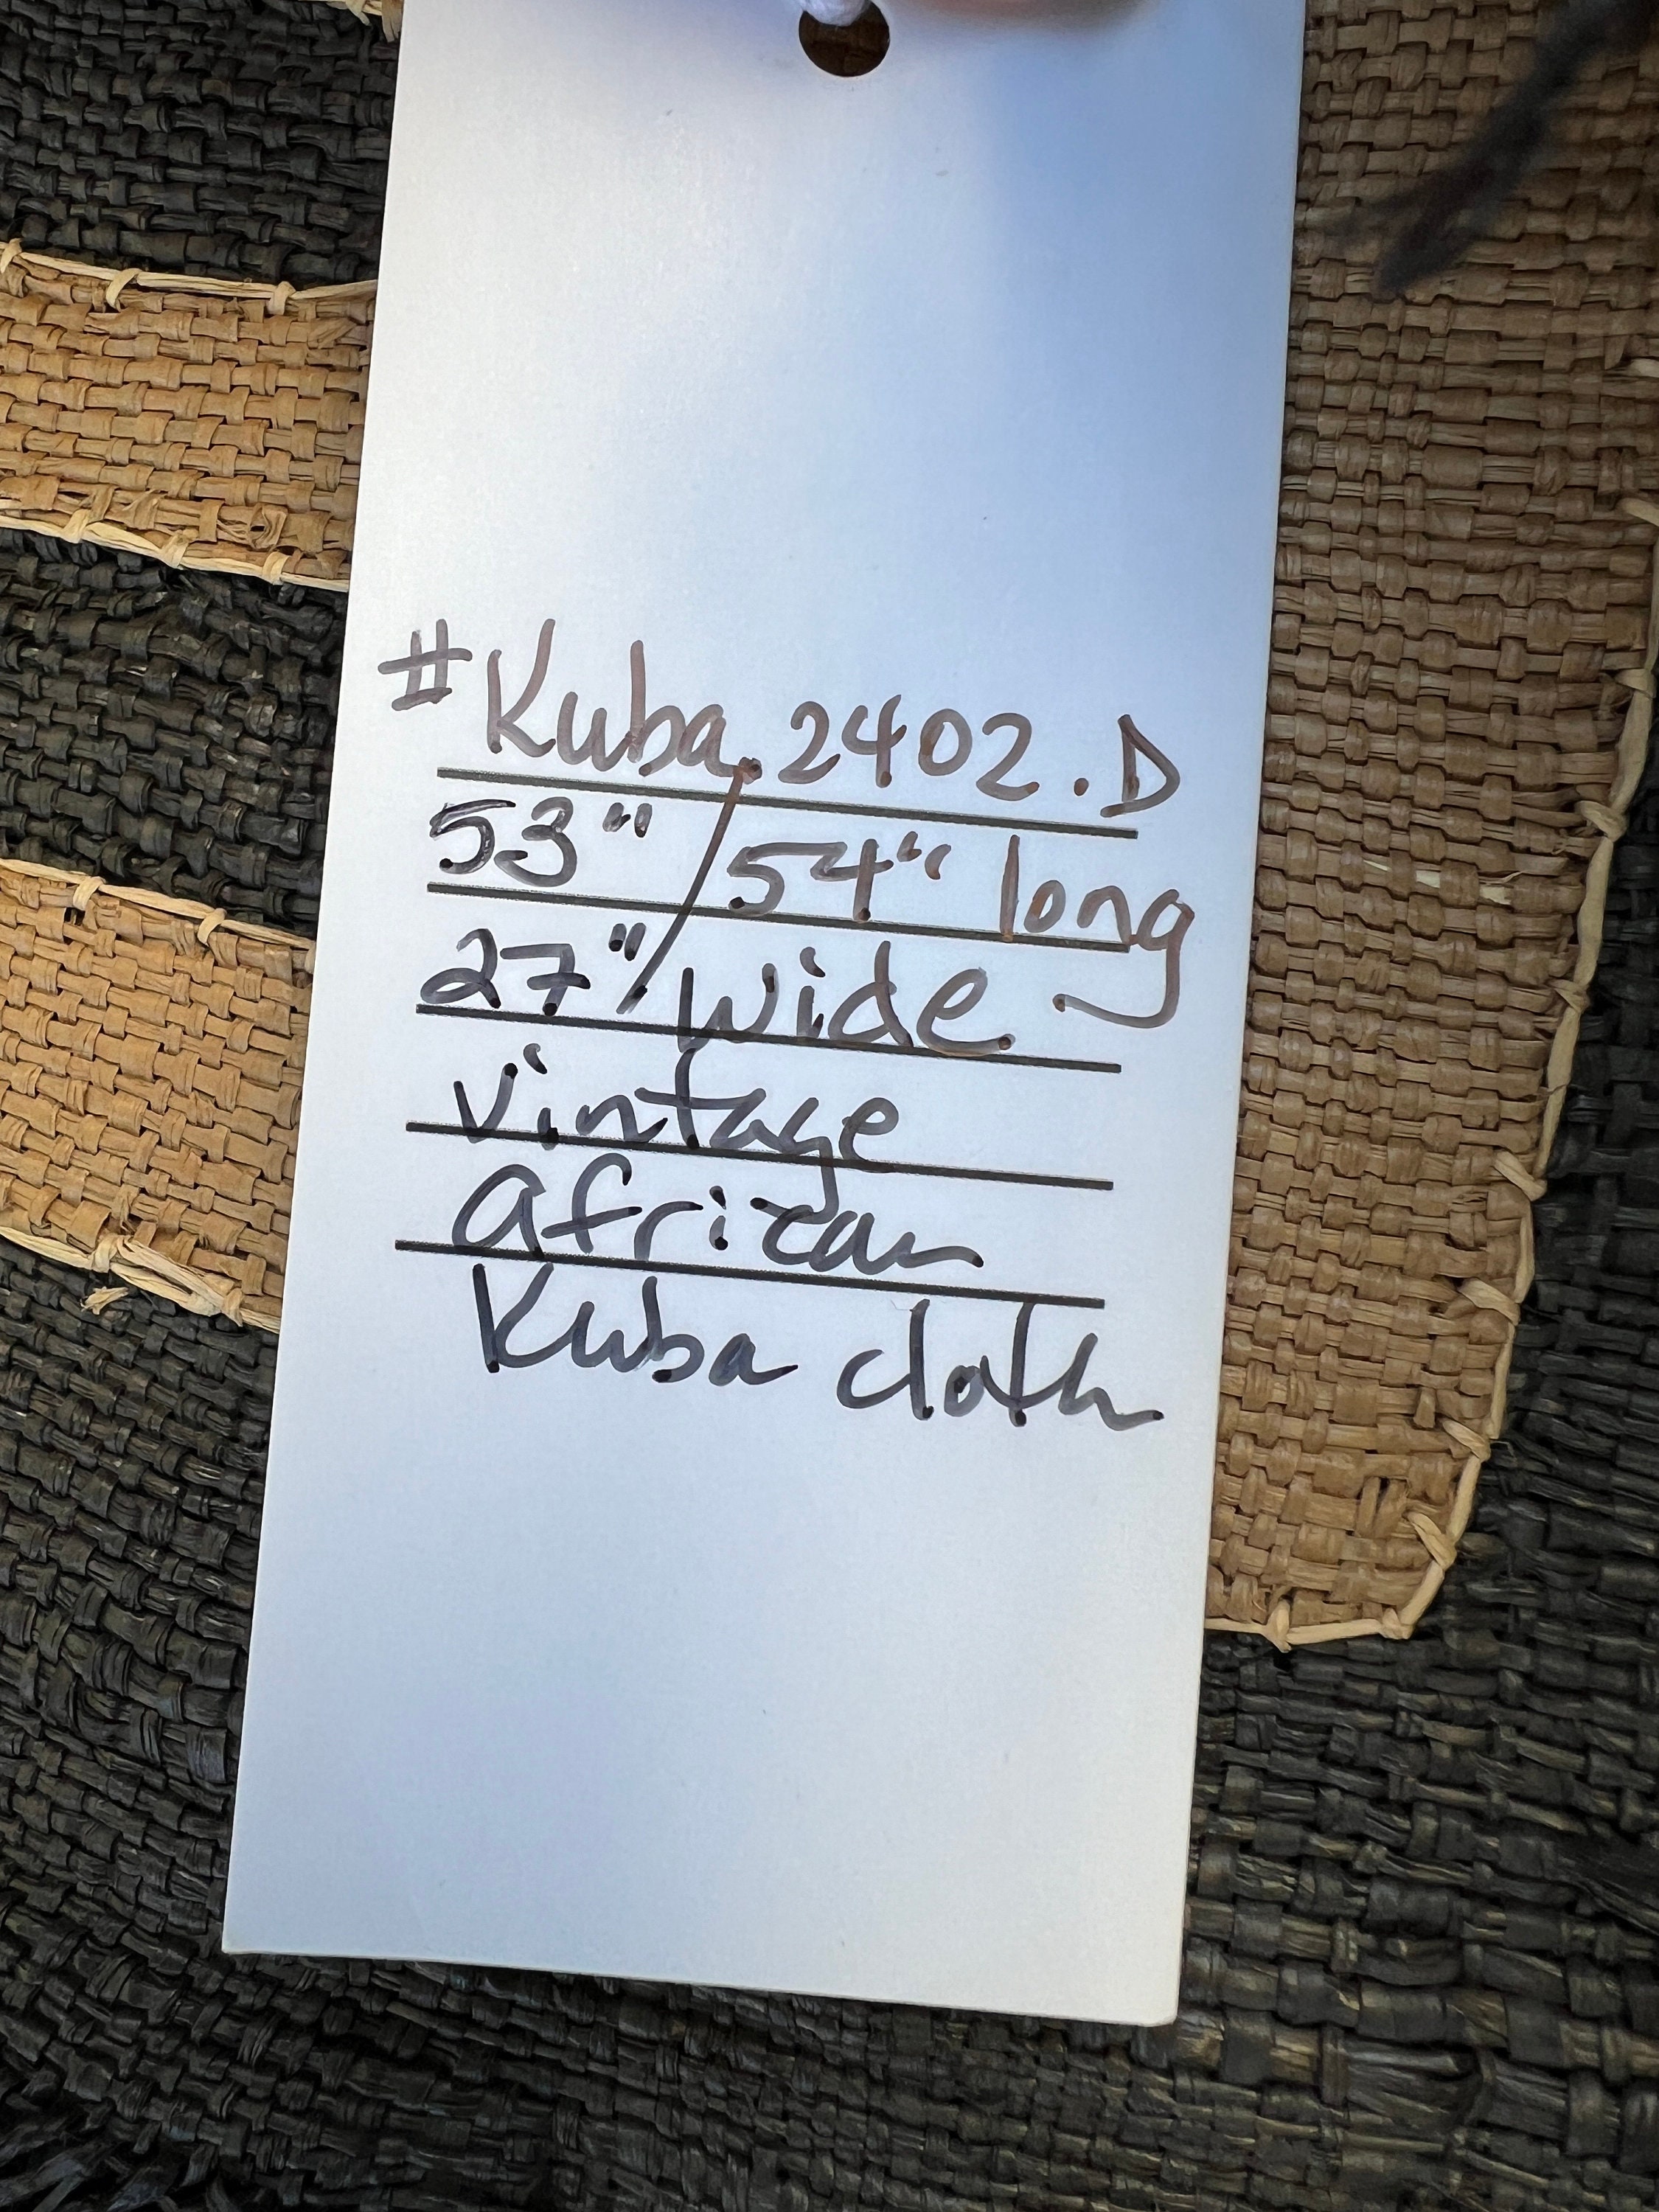 #Kuba.2402.D
53"/54" long
27" wide
vintage
african
Kuba cloth